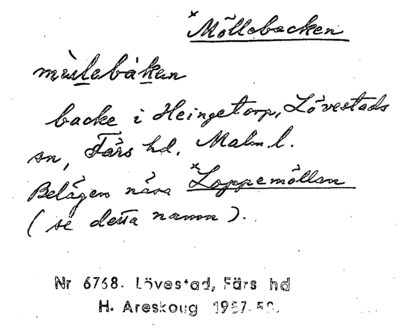 *Möllebacken
mølebákan
backe i Heingetorp, Lövestads
sn, Färs hd, Malm.l.
Belägen nära *Loppemöllan
(se detta namn).
Nr 6768. Lövestad, Färs hd
H. Areskoug 1957-58.